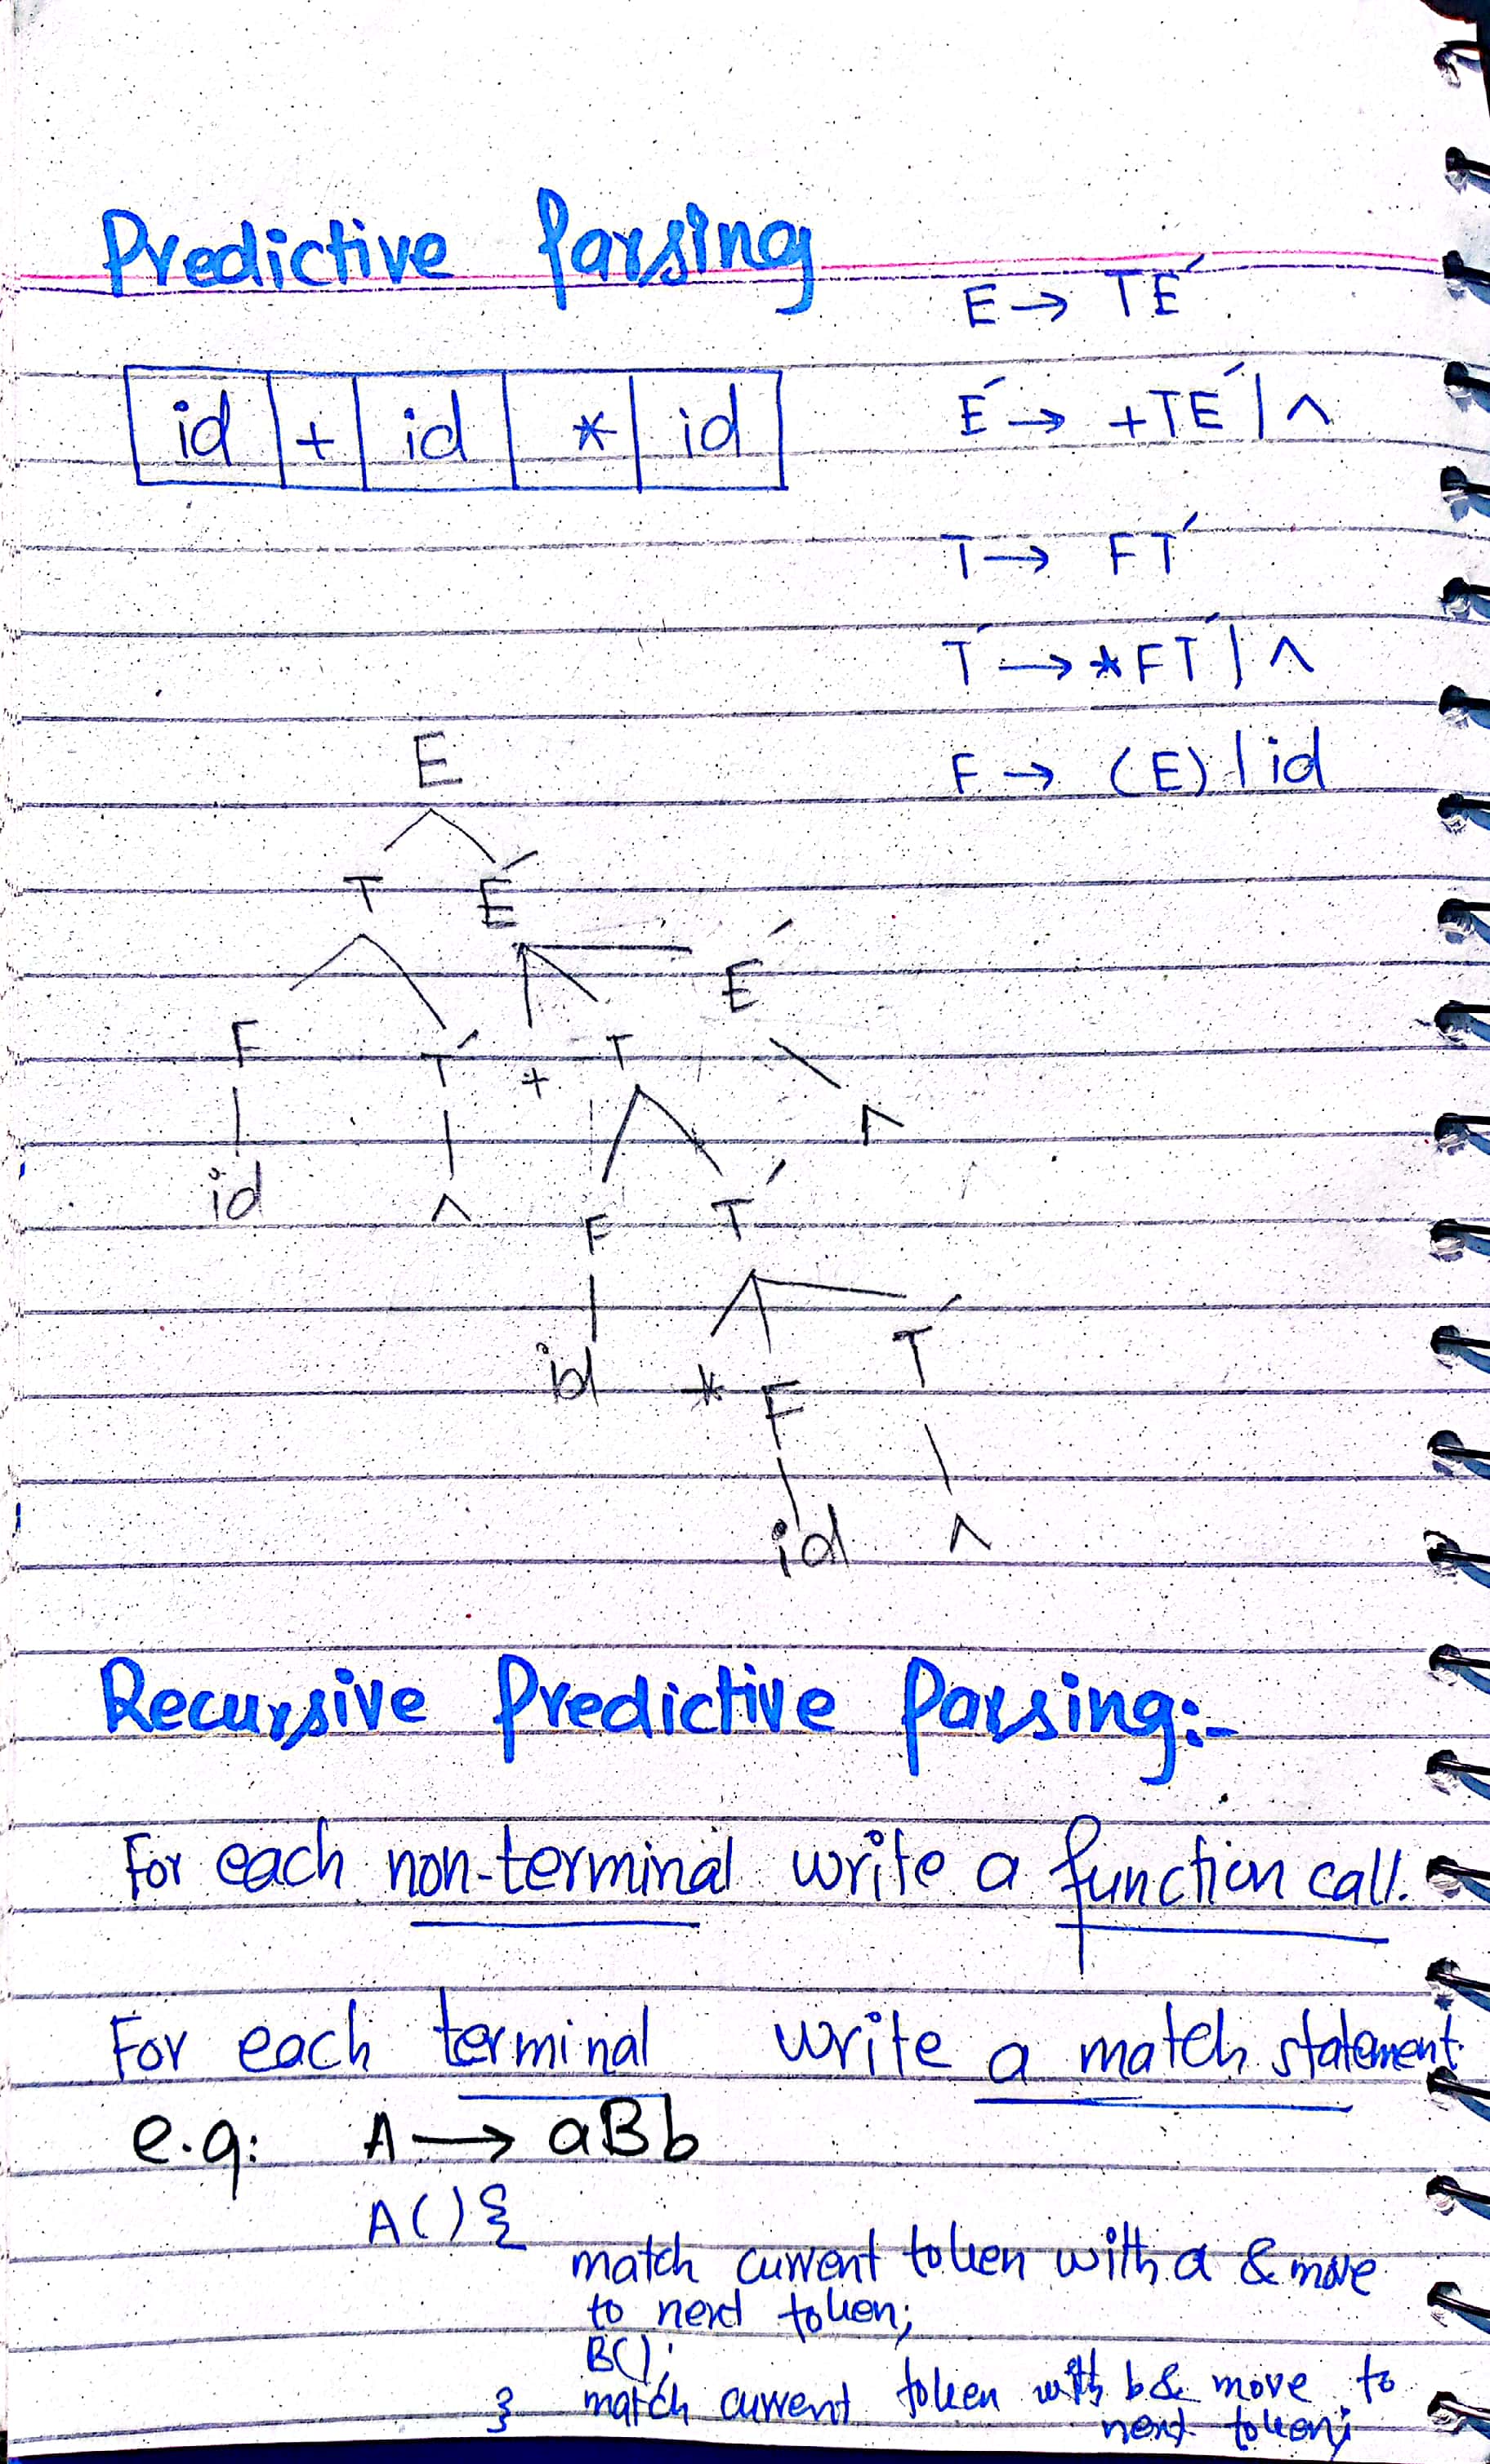 Predictive Parsing
E → TE′
id + id * id
E′ → +TE′ | ^
T → FT′
T′ → *FT′ | ^
F → (E) | id
E
T E′
E′
F T′ + T
^
id ^
F T′
id * F T′
id ^
Recursive Predictive Parsing:-
For each non-terminal write a function call.
For each terminal write a match statement.
e.g: A → aBb
A() {
match current token with a & move
to next token;
B();
} match current token with b & move to
next token;